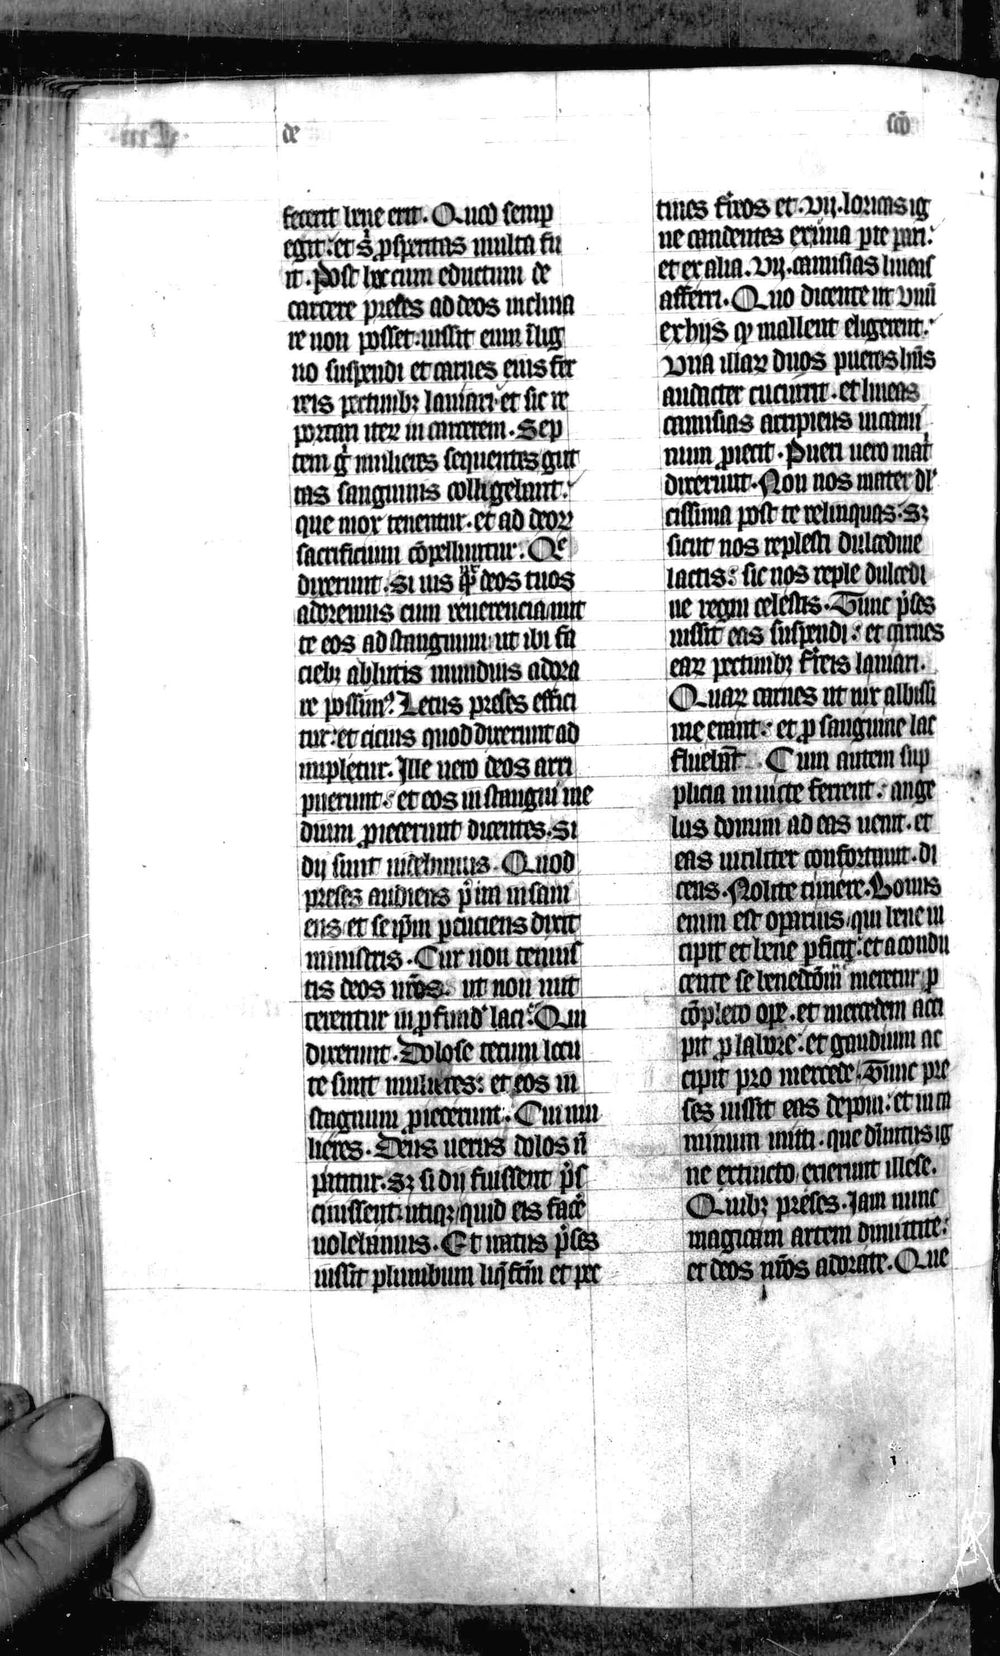 de
sco
fecerit bene erit. Quod semp
egit: et s prosperitas multa fu
it. Post hec cum eductum de
carcere preses ad deos inclina
re non posset: iussit eum i lig
no suspendi et carnes eius fer
reis pectinibz laniari: et sic re
portari iterum in carcerem. Sep
tem g mulieres sequentes gut
tas sanguinis colligebant:
que mox tenentur. et ad deorz
sacrificium copelluntur. Qe
dixerunt. Si uis deos tuos
adoremus cum reuerencia mit
te eos ad stangnum ut ibi fa
ciebz ablutis mundius adora
re possim? Letus preses effici
tur: et cicius quod dixerunt ad
impletur. Ille uero deos arri
puerunt: et eos in stangni me
dium proiecerunt dicentes. Si
dij sunt uidebimus. Quod
preses audiens p ira insani
ens et se ipm percuciens dixit
ministris. Cur non tenuis
tis deos nros. ut non mit
terentur in profund laci: Qui
dixerunt. Dolose tecum locu
te sunt mulieres: et eos in
stagnum proiecerunt. Cui mu
lieres. Deus uerus dolos n
patitur. Sz si dij fuissent ps
ciuissent utiqz quid eis face
uolebamus. Et iratus pses
iussit plumbum liqfcm et pec
tines freos et. vij. loricas ig
ne candentes ex una pte pari:
et ex alia. vij. camisias lineas
afferri. Quo dicente ut unu
ex hijs q mallent eligerent:
Vna illarz duos pueros hns
audacter cucurrit. et lineas
camisias arripiens in cami
num proiecit. Pueri uero mat
dixerunt. Non nos mater dl
cissima post te relinquas. sz
sicut nos replesti dulcedine
lactis: sic nos reple dulcedi
ne regni celestis. Tunc pses
iussit eas suspendi: et carnes
earz pectinibz freis laniari.
Quarz carnes ut nix albissi
me erant: et p sanguine lac
fluebat. Cum autem sup
plicia inuicte ferrent: ange
lus domini ad eas uenit. et
eas uiriliter confortauit. di
cens. Nolite timere. Bonus
enim est oparius qui bene in
cipit et bene pficit: et a condu
cente se benedcom meretur p
copleto ope. et mercedem acci
pit p labore: et gaudium ac
cipit pro mercede. Tunc pre
ses iussit eas deponi: et in ca
minum mitti. que diuinitus ig
ne extincto exierunt illese.
Quibz preses. Iam nunc
magicam artem dimittite:
et deos nros adorate. Que